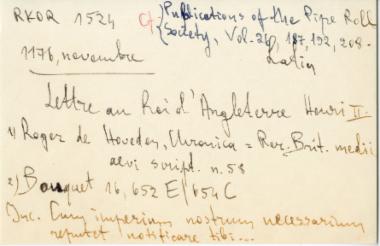 RKOR 1524 cf {Publications of the Pipe Roll
Society, Vol. 26, 187, 192, 208.
1176, novembre
Latin
Lettre au Roi d'Angleterre Henri II.
1) Roger de Hoveden, Chronica = Rer. Brit. medii
aevi script. n. 58
2) Bouquet 16, 652 E / 654 C
Inc. Cum imperium nostrum necessarium
reputet notificare tibi...